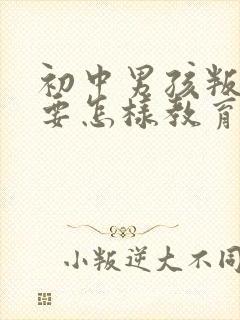 初中男孩叛
要怎样教育
小叛逆大不同